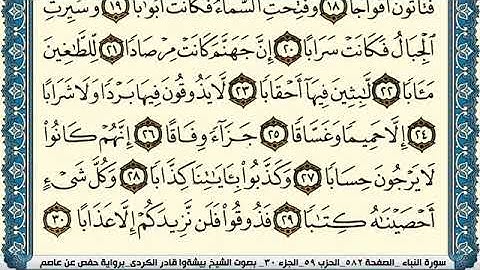 فَتَأْتُونَ أَفْوَاجًا ١٨ وَفُتِحَتِ السَّمَاءُ فَكَانَتْ أَبْوَابًا ١٩ وَسُيِّرَتِ
الْجِبَالُ فَكَانَتْ سَرَابًا ٢٠ إِنَّ جَهَنَّمَ كَانَتْ مِرْصَادًا ٢١ لِّلطَّٰغِينَ
مَـَٔابًا ٢٢ لَّٰبِثِينَ فِيهَآ أَحْقَابًا ٢٣ لَّا يَذُوقُونَ فِيهَا بَرْدًا وَلَا شَرَابًا
٢٤ إِلَّا حَمِيمًا وَغَسَّاقًا ٢٥ جَزَآءً وِفَاقًا ٢٦ إِنَّهُمْ كَانُوا۟
لَا يَرْجُونَ حِسَابًا ٢٧ وَكَذَّبُوا۟ بِـَٔايَٰتِنَا كِذَّابًا ٢٨ وَكُلَّ شَىْءٍ
أَحْصَيْنَٰهُ كِتَٰبًا ٢٩ فَذُوقُوا۟ فَلَن نَّزِيدَكُمْ إِلَّا عَذَابًا ٣٠
سورة النباء _الصفحة ٥٨٢_الحزب ٥٩_الجزء ٣٠_ بصوت الشيخ بيشةوا قادر الكردى_برواية حفص عن عاصم